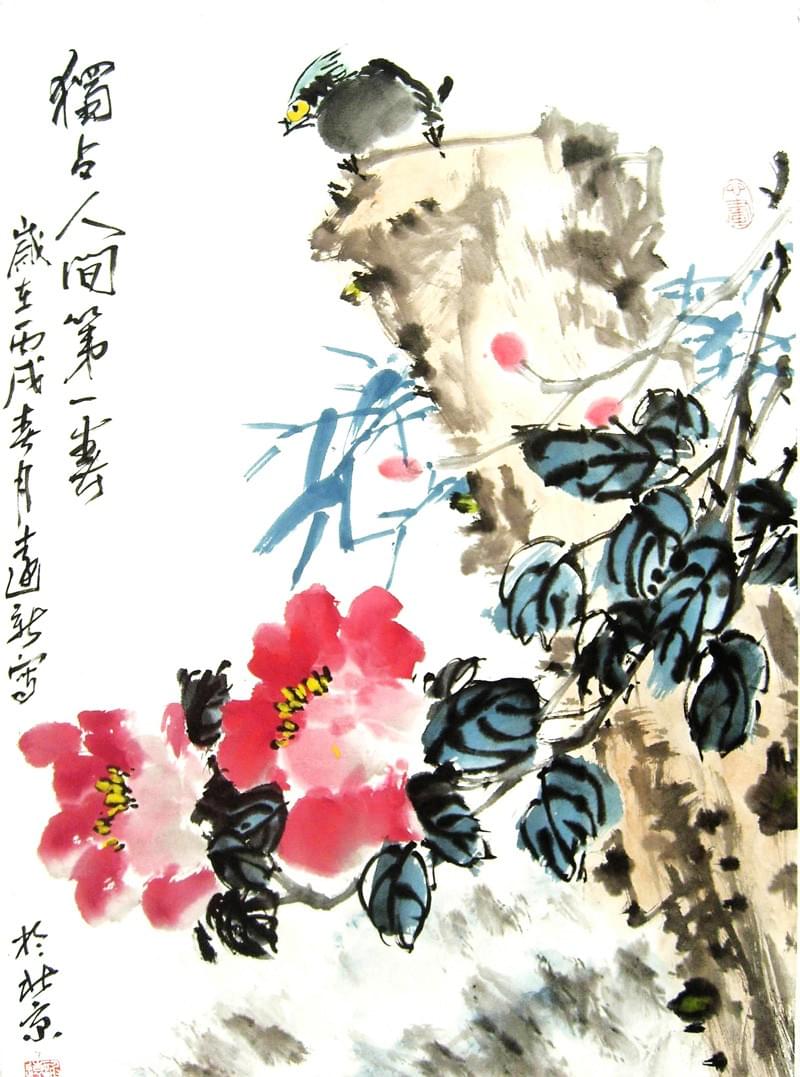 獨占人間第一香
歲在丙戌春月遠新寫
於北京